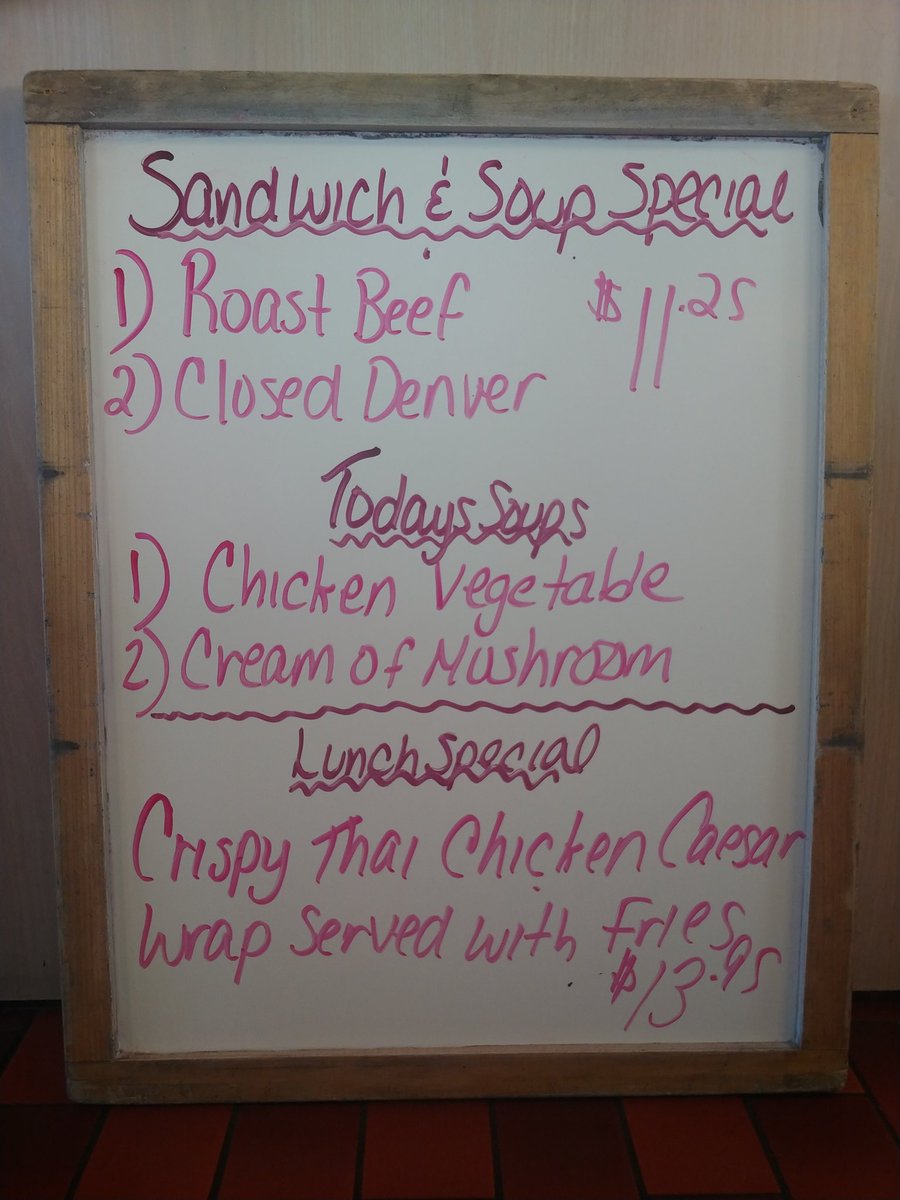 Sandwich & Soup Special
1) Roast Beef $11.25
2) Closed Denver
Todays Soups
1) Chicken Vegetable
2) Cream of Mushroom
Lunch Special
Crispy Thai Chicken Caesar
Wrap Served with Fries
$13.95